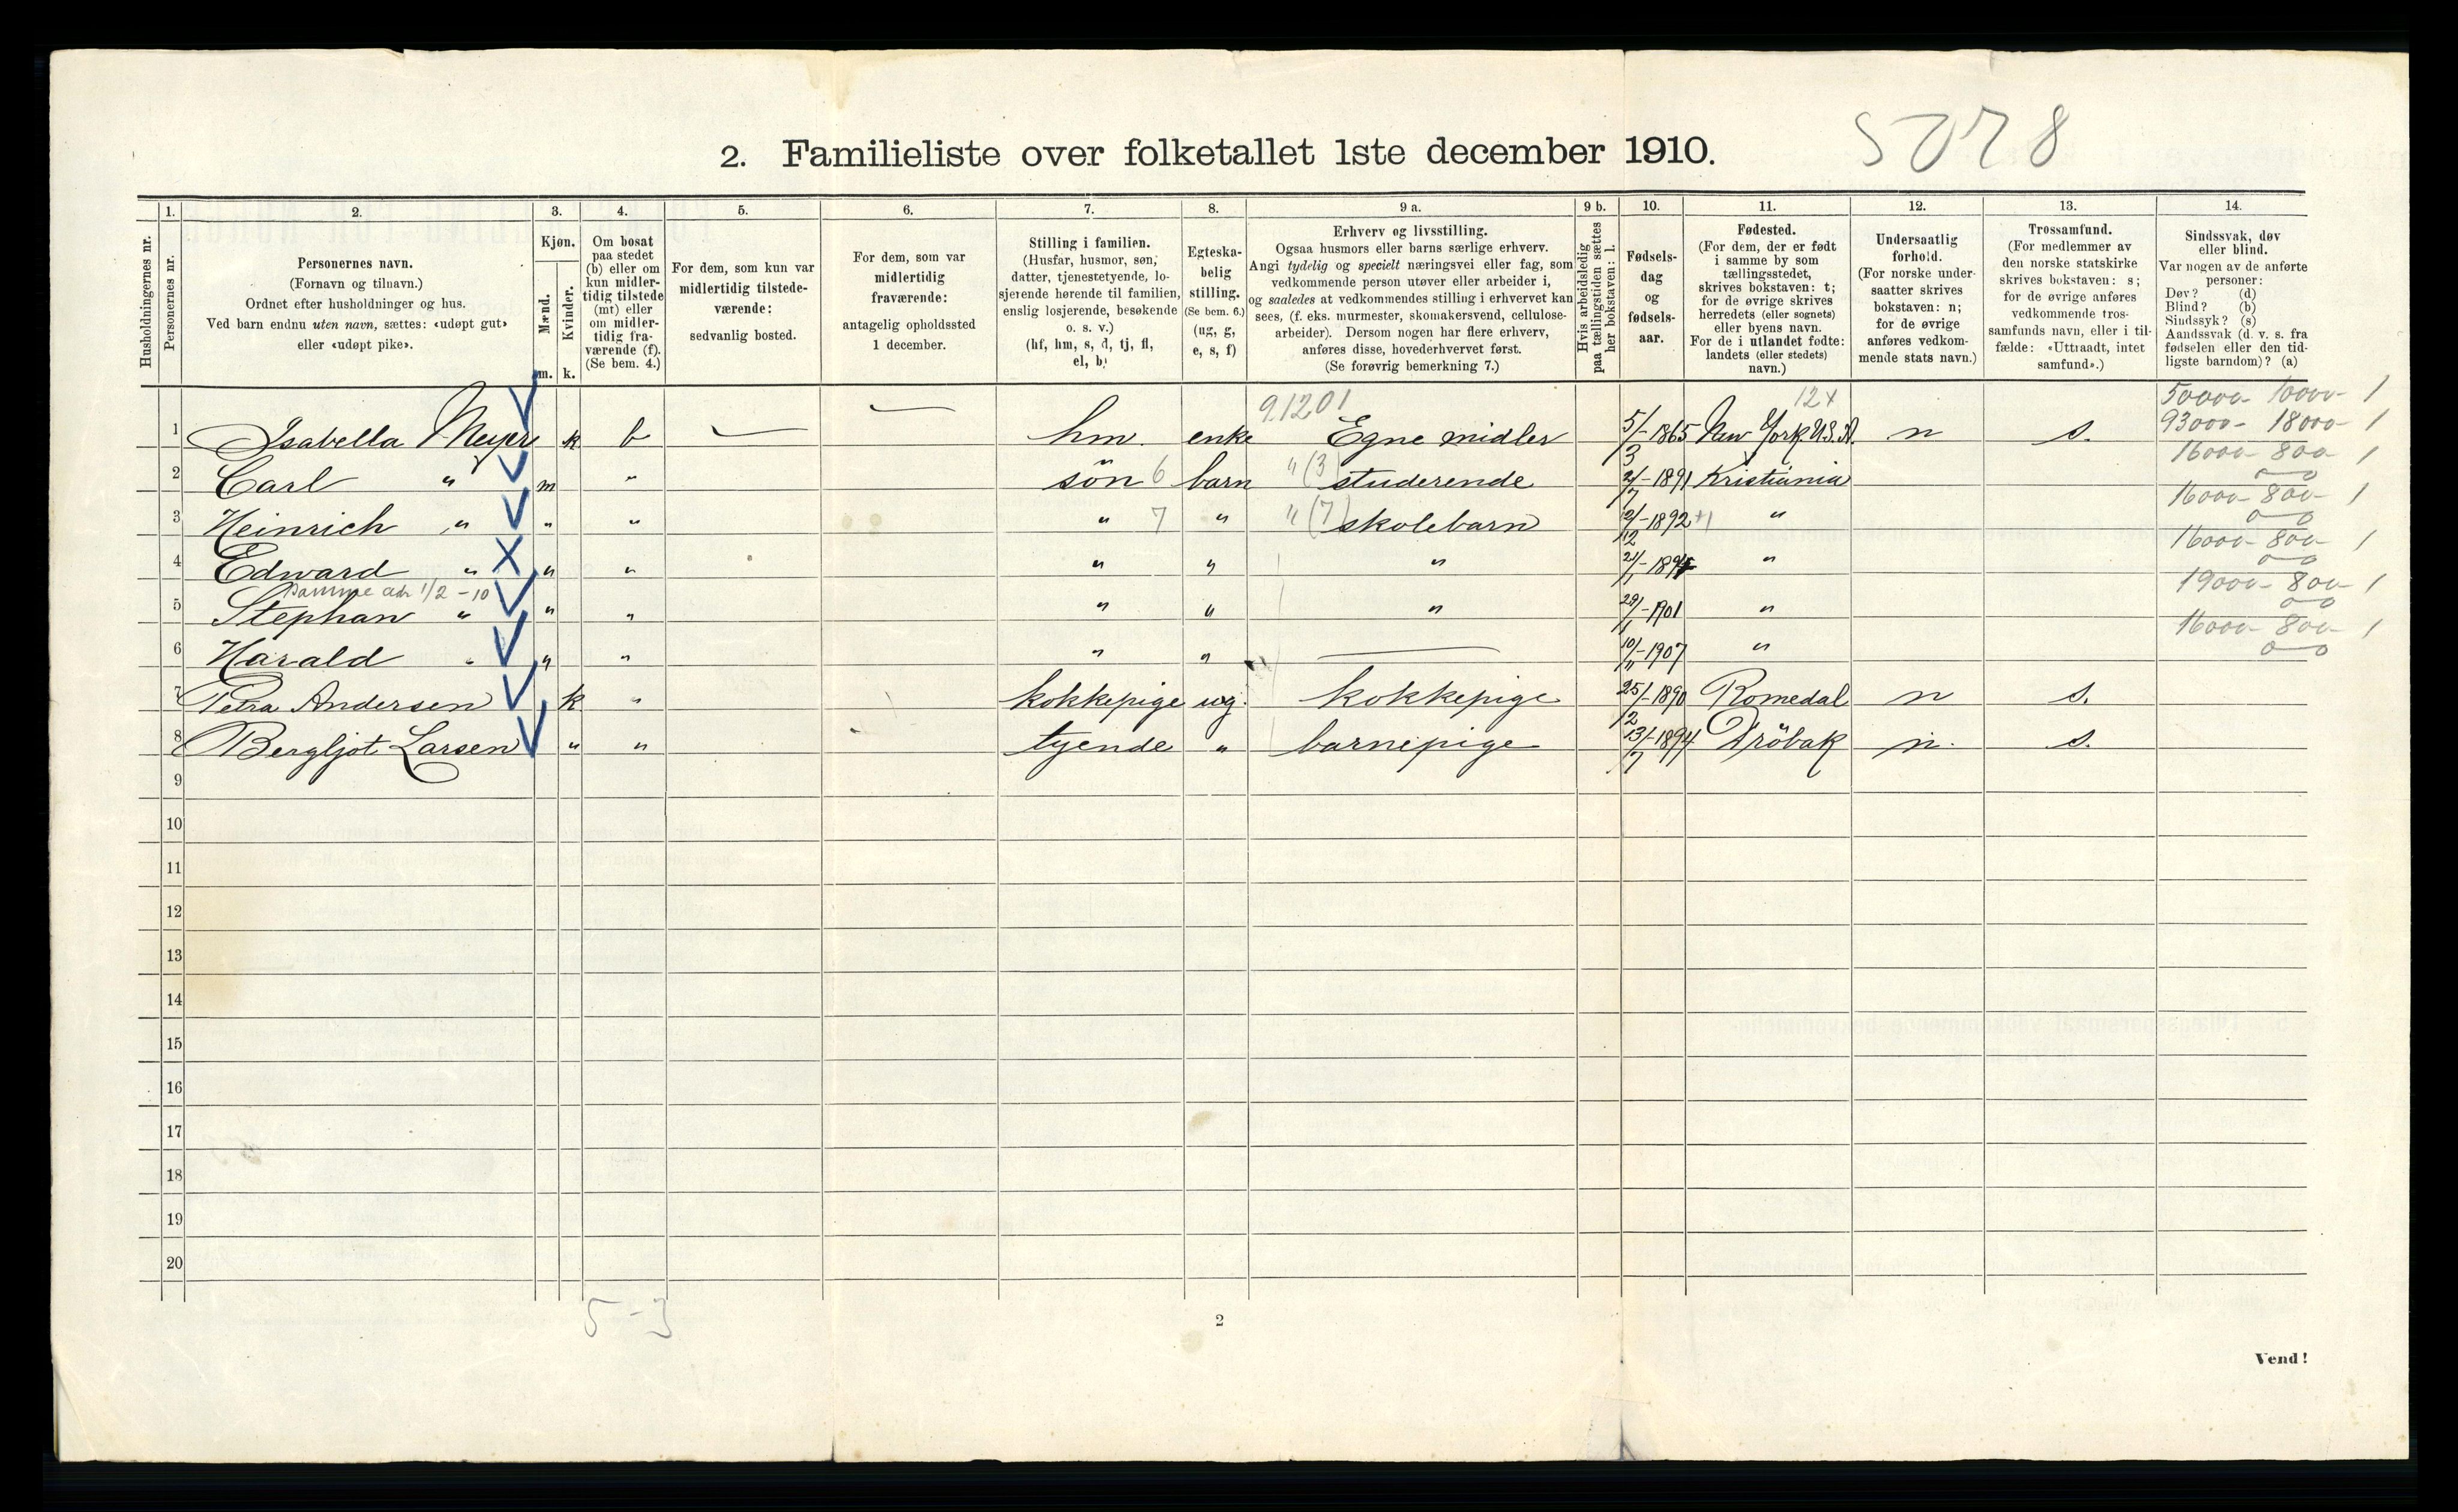 2. Familieliste over folketallet 1ste december 1910.
5078
1. 2. 3. 4. 5. 6. 7. 8. 9 a. 9 b. 10. 11. 12. 13. 14.
Husholdningernes nr.
Personernes nr.
Personernes navn.
(Fornavn og tilnavn.)
Ordnet efter husholdninger og hus.
Ved barn endnu uten navn, sættes: «udøpt gut»
eller «udøpt pike».
Kjøn.
Mænd.
Kvinder.
m. k.
Om bosat
paa stedet
(b) eller om
kun midler-
tidig tilstede
(mt) eller
om midler-
tidig fra-
værende (f).
(Se bem. 4.)
For dem, som kun var
midlertidig tilstede-
værende:
sedvanlig bosted.
For dem, som var
midlertidig
fraværende:
antagelig opholdssted
1 december.
Stilling i familien.
(Husfar, husmor, søn,
datter, tjenestetyende, lo-
sjerende hørende til familien,
enslig losjerende, besøkende
o. s. v.)
(hf, hm, s, d, tj, fl,
el, b)
Egteska-
belig
stilling.
(Se bem. 6.)
(ug, g,
e, s, f)
Erhverv og livsstilling.
Ogsaa husmors eller barns særlige erhverv.
Angi tydelig og specielt næringsvei eller fag, som
vedkommende person utøver eller arbeider i,
og saaledes at vedkommendes stilling i erhvervet kan
sees, (f. eks. murmester, skomakersvend, cellulose-
arbeider). Dersom nogen har flere erhverv,
anføres disse, hovederhvervet først.
(Se forøvrig bemerkning 7.)
Hvis arbeidsledig
paa tællingstiden sættes
her bokstaven: l.
Fødsels-
dag
og
fødsels-
aar.
Fødested.
(For dem, der er født
i samme by som
tællingsstedet,
skrives bokstaven: t;
for de øvrige skrives
herredets (eller sognets)
eller byens navn.
For de i utlandet fødte:
landets (eller stedets)
navn.)
Undersaatlig
forhold.
(For norske under-
saatter skrives
bokstaven: n;
for de øvrige
anføres vedkom-
mende stats navn.)
Trossamfund.
(For medlemmer av
den norske statskirke
skrives bokstaven: s;
for de øvrige anføres
vedkommende tros-
samfunds navn, eller i til-
fælde: «Uttraadt, intet
samfund».)
Sindssvak, døv
eller blind.
Var nogen av de anførte
personer:
Døv? (d)
Blind? (b)
Sindssyk? (s)
Aandssvak (d. v. s. fra
fødselen eller den tid-
ligste barndom)? (a)
91201 12x 50000- 10000- 1
1 Isabella Meyer k b hm. enke Egne midler 5/3-1865 New York U.S.A. n s. 93000- 18000- 1
2 Carl " m " søn 6 barn " (3) studerende 2/7-1891 Kristiania 16000- 800- 1
3 Heinrich " " " " 7 " " (7) skolebarn 12/12-1892 +1 " 16000- 800- 1
4 Edward " " " " " " 21/1-1894 " 16000- 800- 1
Samme adr 1/2 -10
5 Stephan " " " " " " 29/1-1901 " 19000- 800- 1
6 Harald " " " " " 10/11-1907 " 16000- 800- 1
7 Petra Andersen k " kokkepige ug. kokkepige 25/12-1890 Romedal n s.
8 Bergljot Larsen " " tyende " barnepige 13/7-1894 Drøbak n. s.
9
10
11
12
13
14
15
16
17
18
19
20
5-3
2
Vend!